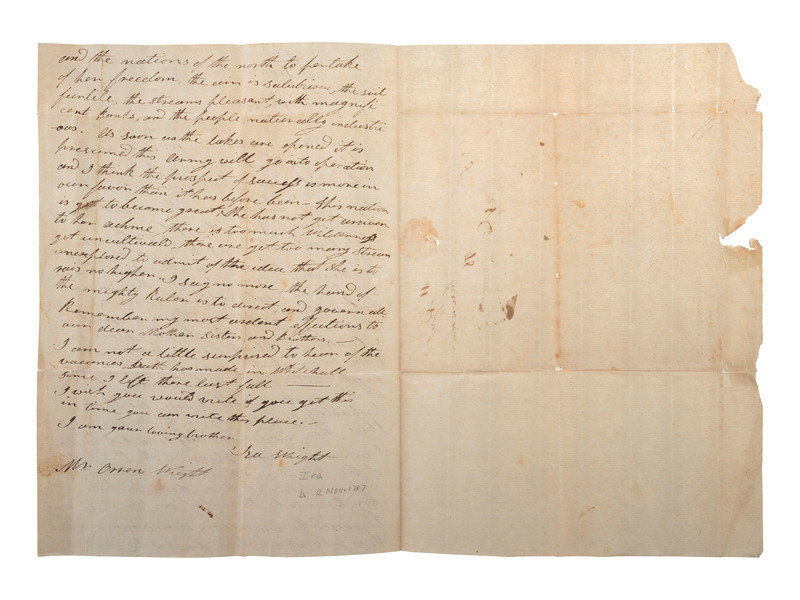 and the nations of the north to pertake
of her freedom, the air is salubrious, the soil
fertile, the streams pleasant, with magnifi
cent banks, and the people naturally industri
ous. As soon as the lakes are opened it is
presumed this Army will go into operation
and I think the prospect of success is more in
our favor than it has before been - this nation
is yet to become great, She has not yet arriven
to her achme there is too much Wilderness
yet uncultivald, there are yet too many Stream
unexplored to admit of the idea that She is to
rais no higher, I say no more the hand of
the mighty Ruler is to direct, and govern all
Remember my most ardent affections to
our dear Mother Sisters and Brothers. —
I am not a little surprised to hear of the
vacances death has made in Whitehall
since I left there last fall —
I wish you would write if you get this
in time you can write this peace. —
I am your loving brother
Ira Wright
Mr Orren Wright
Ira
b. 2 Nov. 1787